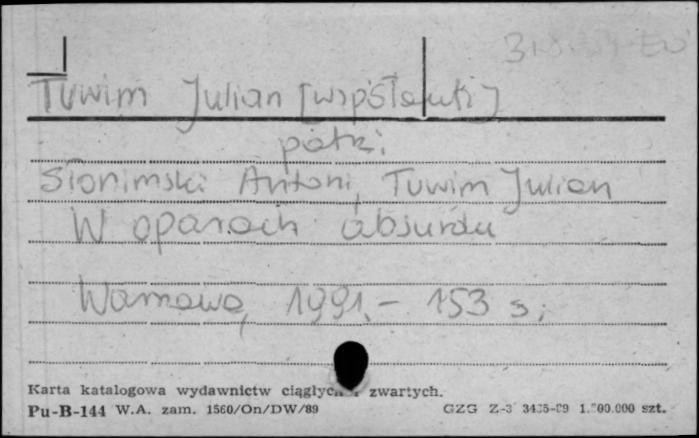 Tuwim Julian [współaut.]
patrz:
Słonimski Antoni, Tuwim Julian
W oparach absurdu
Warszawa, 1991.- 153 s;
Karta katalogowa wydawnictw ciągłych i zwartych.
Pu-B-144 W.A. zam. 1560/On/DW/89 GZG Z-3 szt.